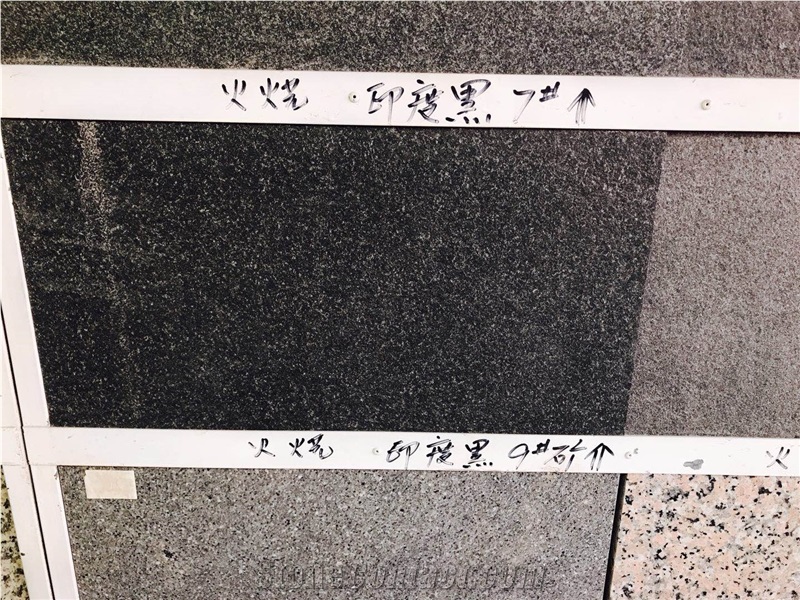 火烧 印度黑 7# ↑
火烧 印度黑 9#砂 ↑ 火
stonecontact.com